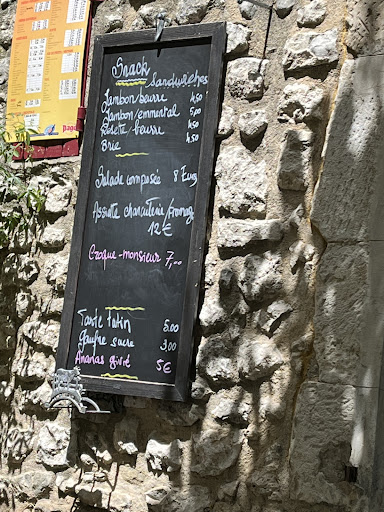 Snack
Sandwiches
Jambon/beurre 4,50
Jambon/emmental 5,00
Rosette/beurre 4,50
Brie 4,50
Salade composée 8 Euros
Assiette charcuterie/fromage
12 €
Croque-monsieur 7,00
Tarte tatin 5.00
Gaufre sucre 3,00
Ananas givré 5€